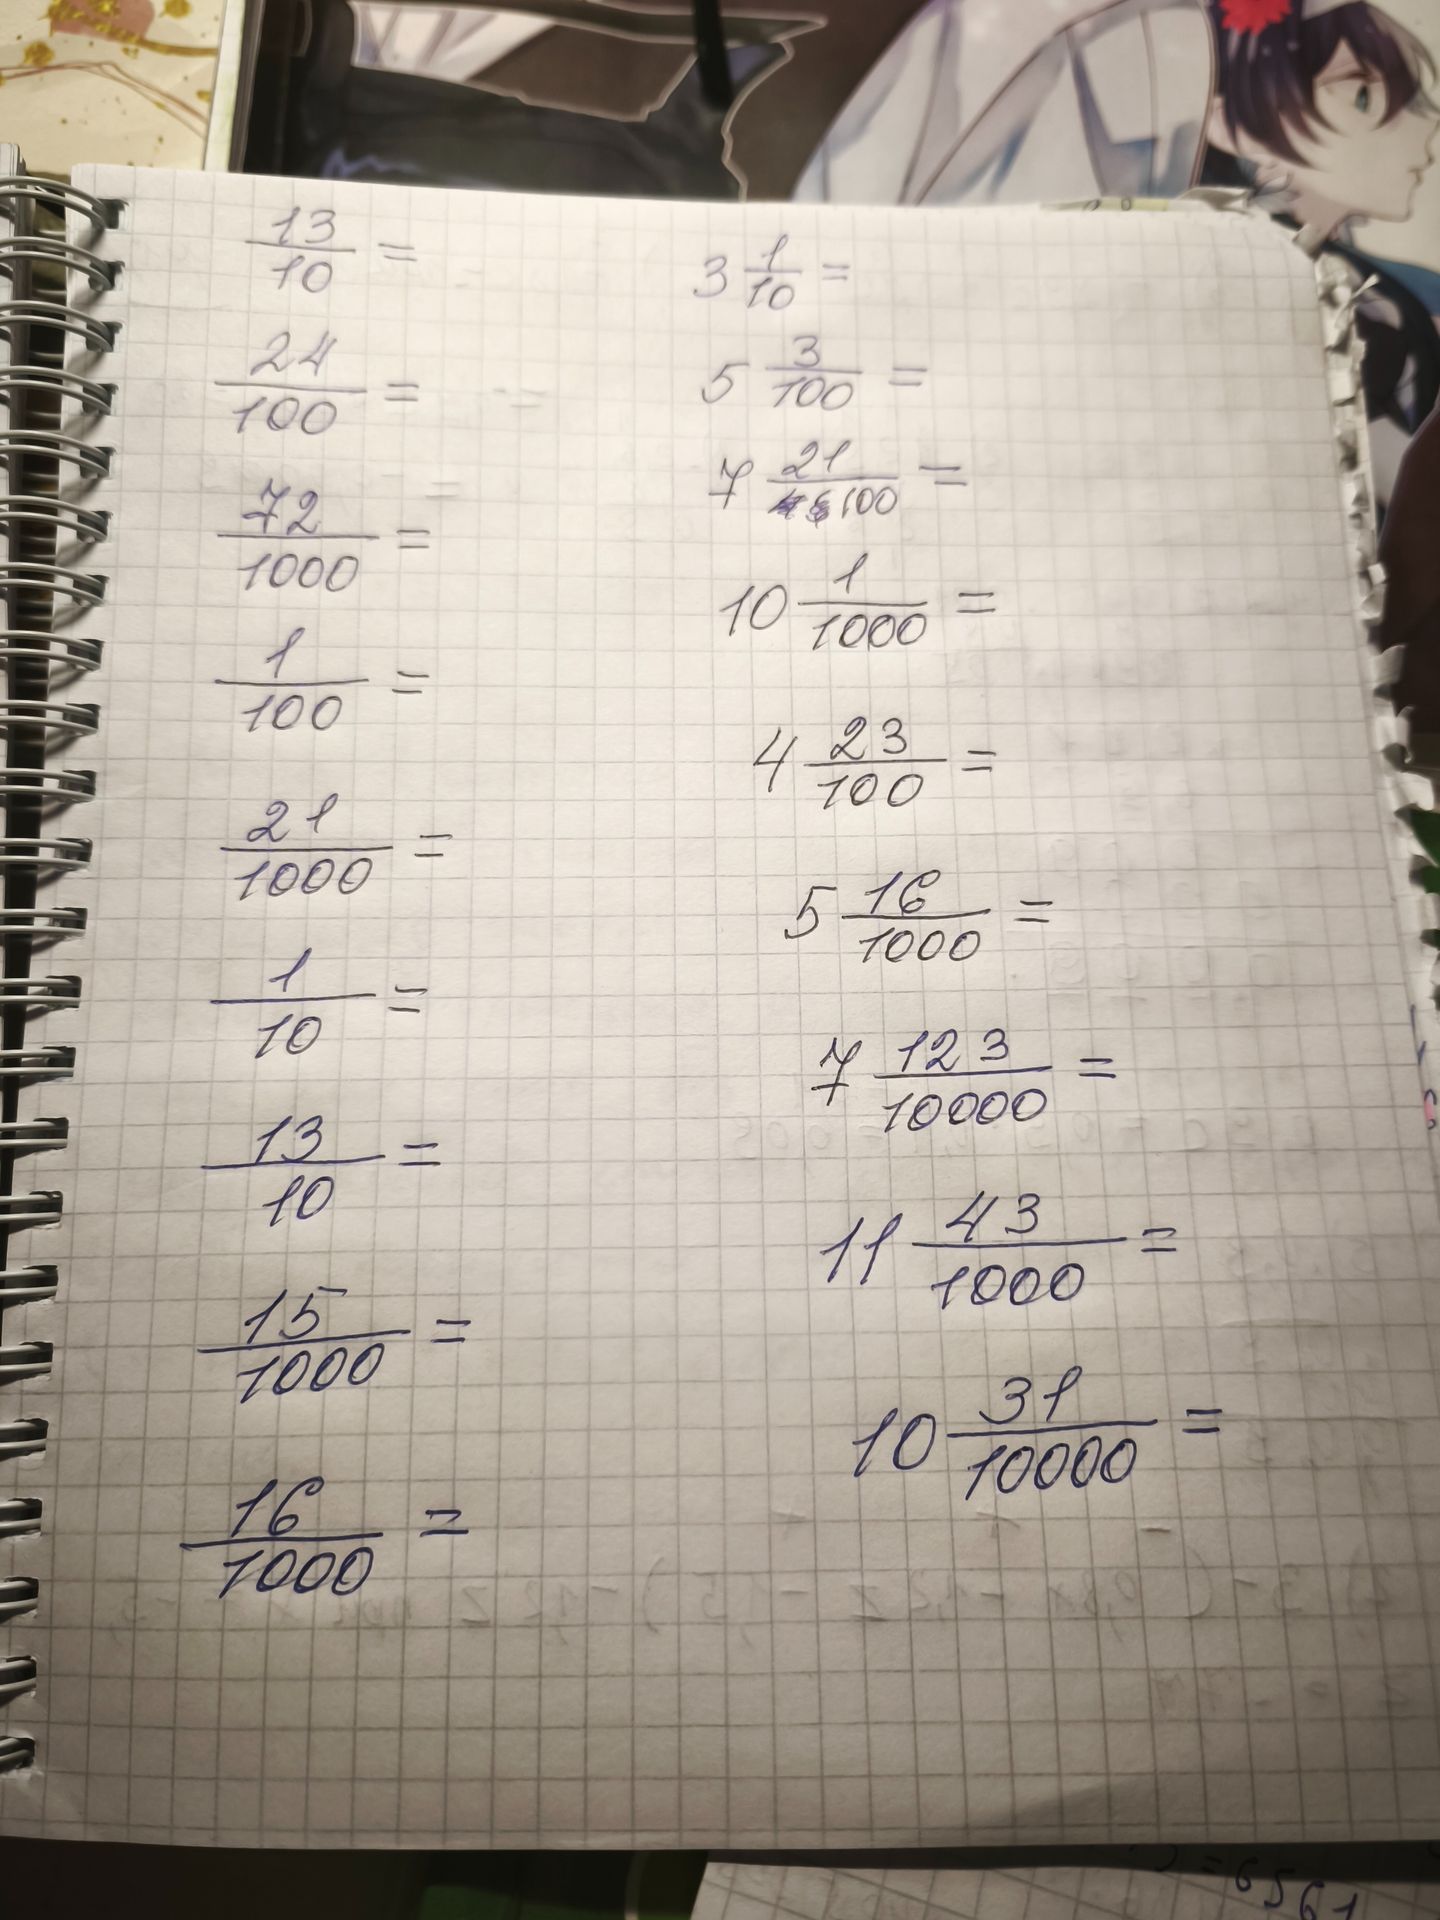 13/10 =
24/100 =
72/1000 =
1/100 =
21/1000 =
1/10 =
13/10 =
15/1000 =
16/1000 =
3 1/10 =
5 3/100 =
7 21/100 =
10 1/1000 =
4 23/100 =
5 16/1000 =
7 123/10000 =
11 43/1000 =
10 31/10000 =
= 6561